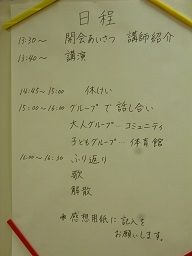 日程
13:30～ 開会あいさつ 講師紹介
13:40～ 講演
14:45～15:00 休けい
15:00～16:00 グループで話し合い
大人グループ…コミュニティ
子どもグループ…体育館
16:00～16:30 ふり返り
歌
解散
*感想用紙に記入を
お願いします。